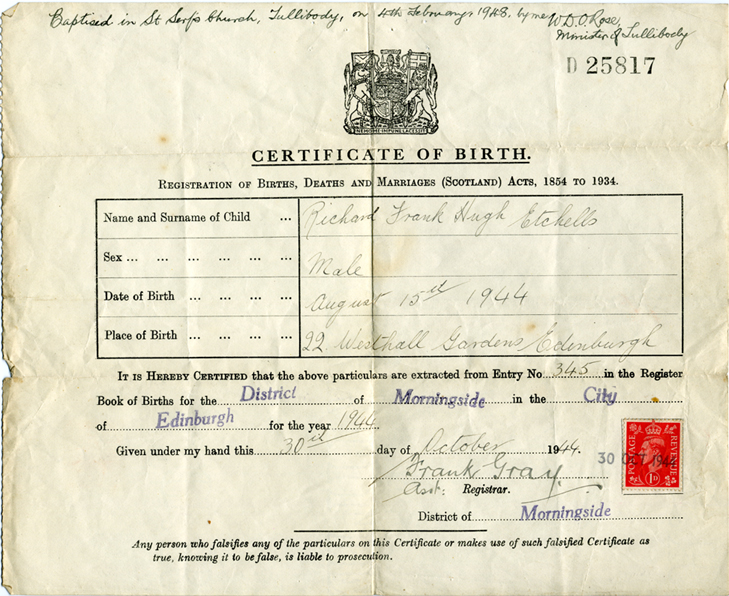 Baptised in St Serf's Church, Tullibody, on 4th February 1948, by me W.D.O. Rose,
Minister of Tullibody
D 25817
NEMO ME IMPUNE LACESSIT
CERTIFICATE OF BIRTH.
REGISTRATION OF BIRTHS, DEATHS AND MARRIAGES (SCOTLAND) ACTS, 1854 TO 1934.
Name and Surname of Child ... Richard Frank Hugh Etchells
Sex ... ... ... ... ... Male
Date of Birth ... ... ... ... August 15th 1944
Place of Birth ... ... ... ... 22 Westhall Gardens Edinburgh
IT IS HEREBY CERTIFIED that the above particulars are extracted from Entry No. 345 in the Register
Book of Births for the District of Morningside in the City
of Edinburgh for the year 1944.
Given under my hand this 30th day of October 1944.
Frank Gray.
Asst: Registrar.
30 OCT 1944
POSTAGE REVENUE
1D
District of Morningside
Any person who falsifies any of the particulars on this Certificate or makes use of such falsified Certificate as
true, knowing it to be false, is liable to prosecution.